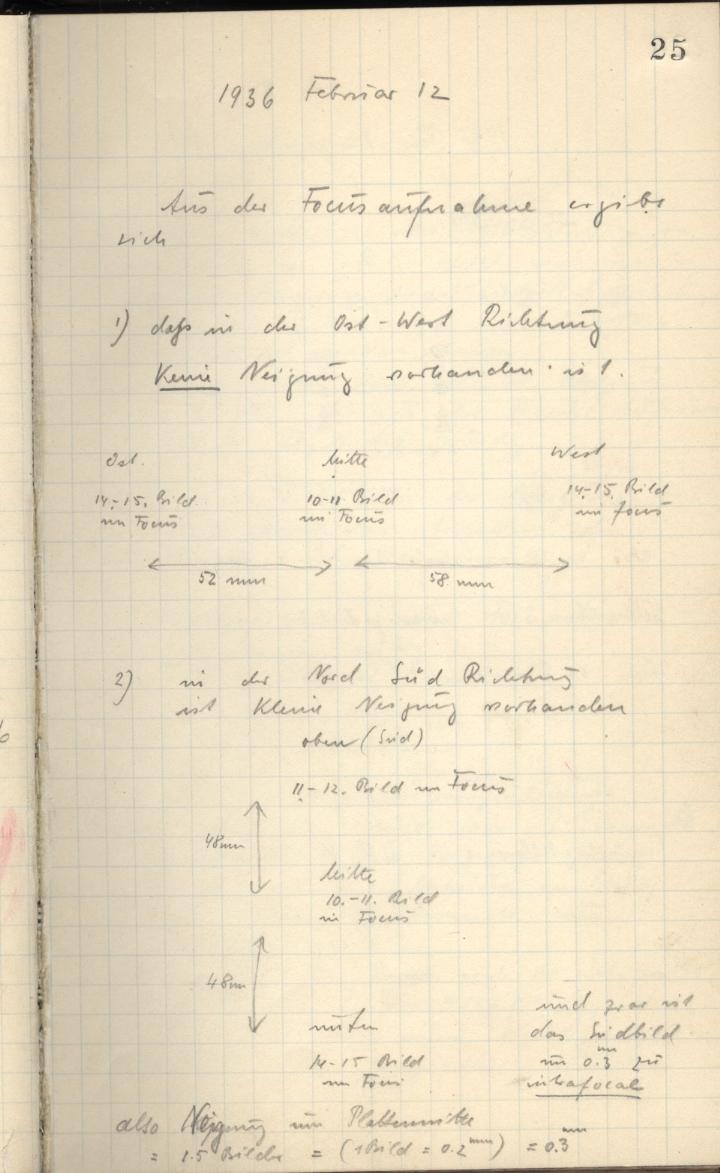 25
1936 Februar 12
Aus der Focusaufnahme ergibt
sich
1) daß in der Ost-West Richtung
Keine Neigung vorhanden ist.
Ost. Mitte West
14.-15. Bild 10-11. Bild 14.-15. Bild
im Focus im Focus im focus
52 mm 58 mm
2) in der Nord Süd Richtung
ist kleine Neigung vorhanden
oben (Süd)
11.-12. Bild im Focus
48mm
Mitte
10.-11. Bild
im Focus
48mm
unten
14-15 Bild
im Focus
und zwar ist
das Südbild
um 0.3 mm zu
intrafocal
also Neigung um Plattenmitte
= 1.5 Bilder = (1 Bild = 0.2 mm) = 0.3 mm